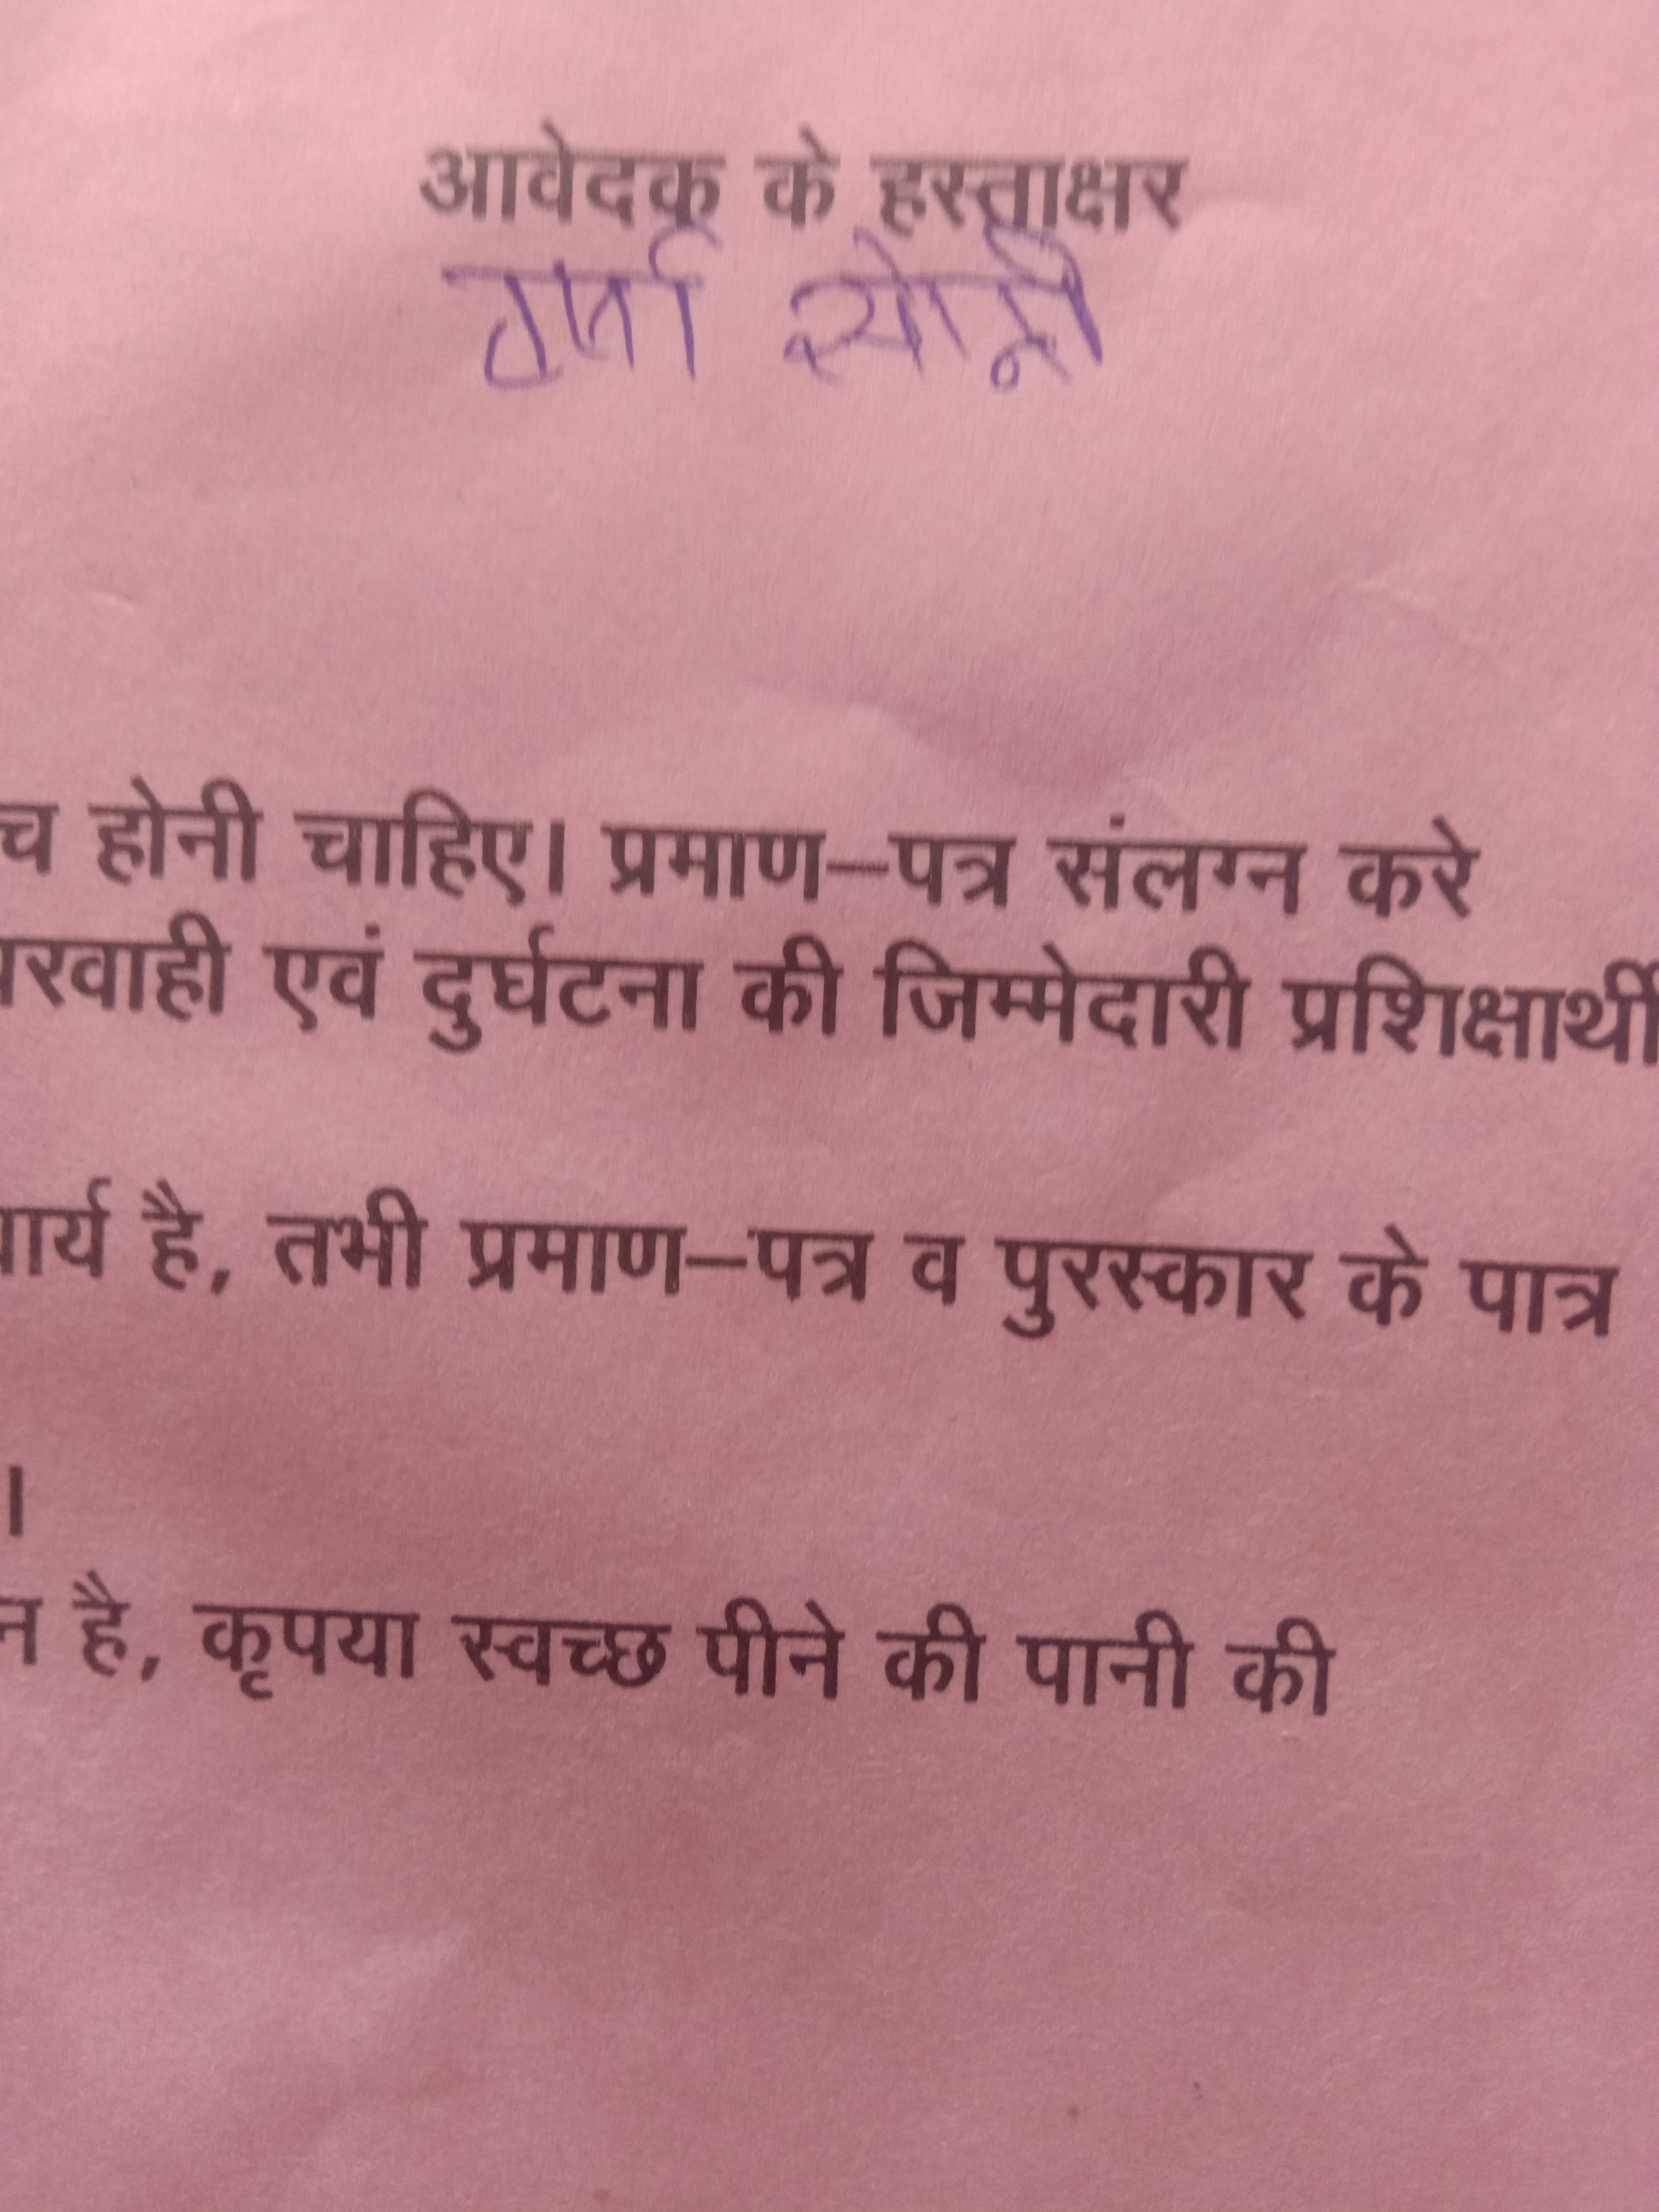 आवेदक के हस्ताक्षर
च होनी चाहिए। प्रमाण–पत्र संलग्न करे
परवाही एवं दुर्घटना की जिम्मेदारी प्रशिक्षार्थी
वार्य है, तभी प्रमाण–पत्र व पुरस्कार के पात्र
।
न है, कृपया स्वच्छ पीने की पानी की